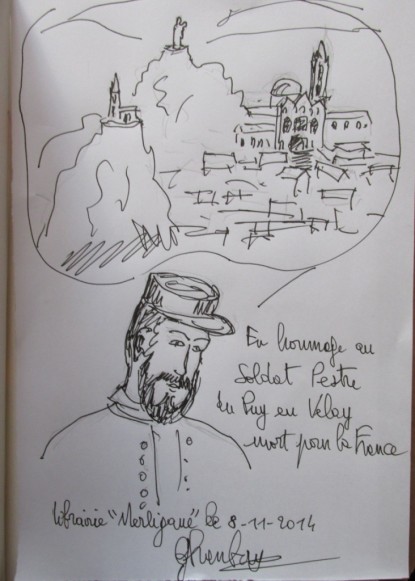 En hommage au
Soldat Pestre
du Puy en Velay
mort pour la France
librairie "Merligane" le 8-11-2014